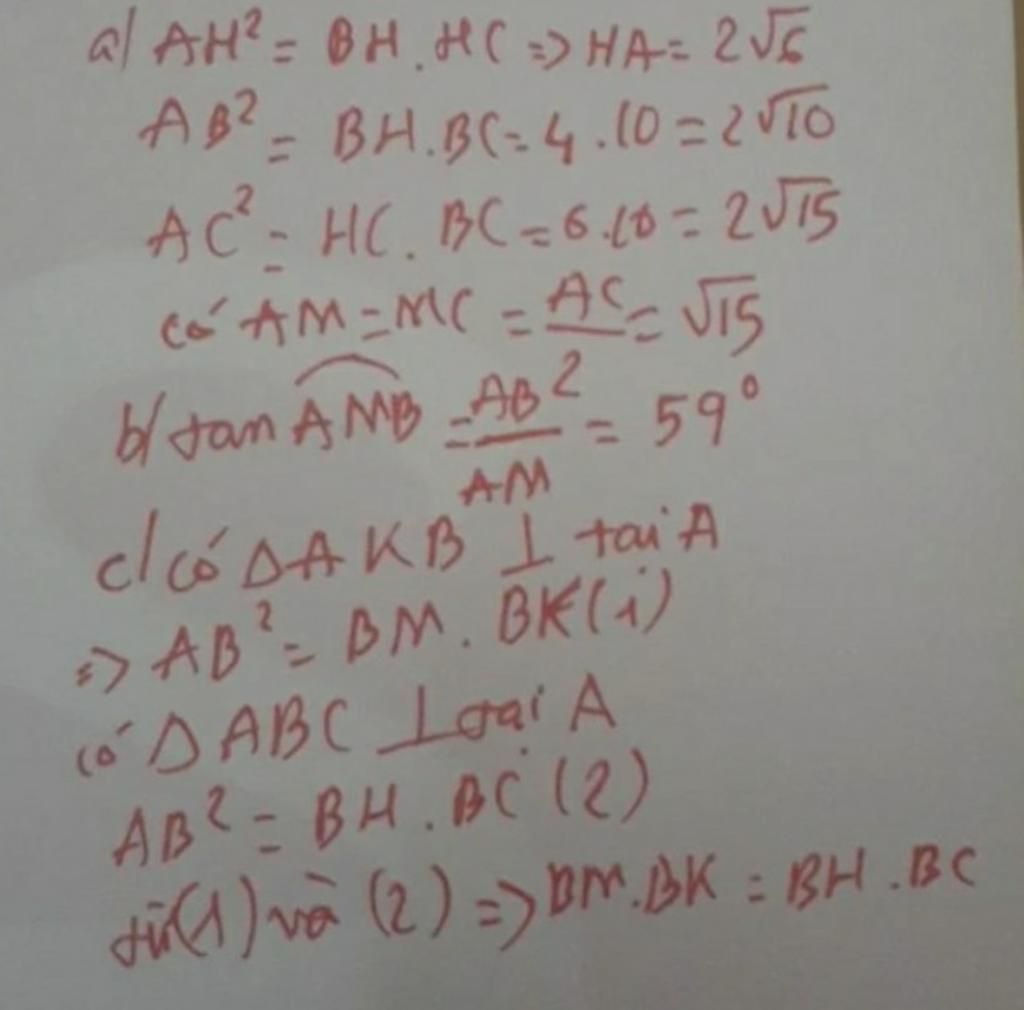 a/ AH² = BH . HC => HA = 2√6
AB² = BH.BC = 4 . 10 = 2√10
AC² = HC . BC = 6.10 = 2√15
có AM = MC = AC/2 = √15
b/ tan AMB = AB/AM = 59°
c/ có Δ AKB ⊥ tai A
=> AB² = BM . BK (1)
có Δ ABC ⊥ tại A
AB² = BH . BC (2)
từ (1) và (2) => BM.BK = BH .BC